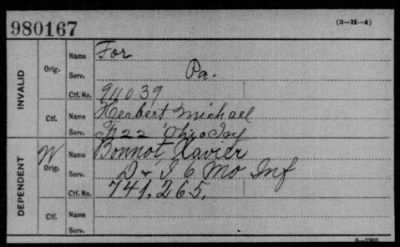 980167
(3—21—4)
INVALID
Orig.
Name For
Serv. Pa.
Ctf. No. 911039
Ctf.
Name Herbert Michael
Serv. F 22 Ohio Inf
DEPENDENT
W Orig.
Name Bonnot, Xavier
Serv. D & I 6 Mo Inf
Ctf. No. 741.265.
Ctf.
Name
Serv.